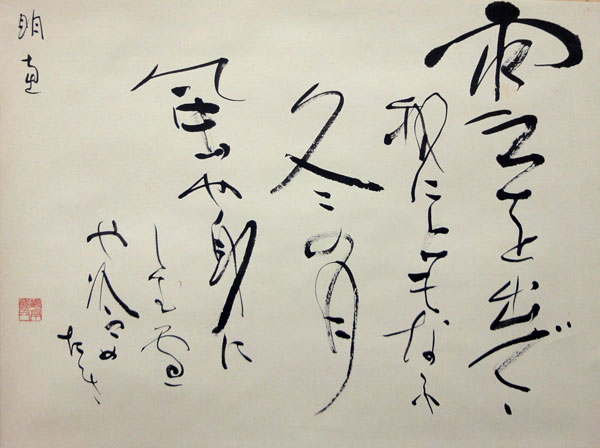 雲を出でゝ
我にともなふ
冬の月
風や身に
しむ雪
や冷めたき
明恵